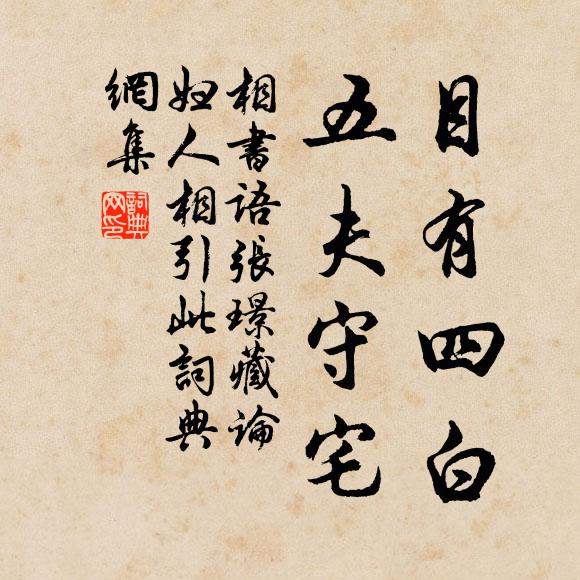 目有四白
五夫守宅
相書語張璟藏論
妇人相引此詞典
網集
詞典
网印